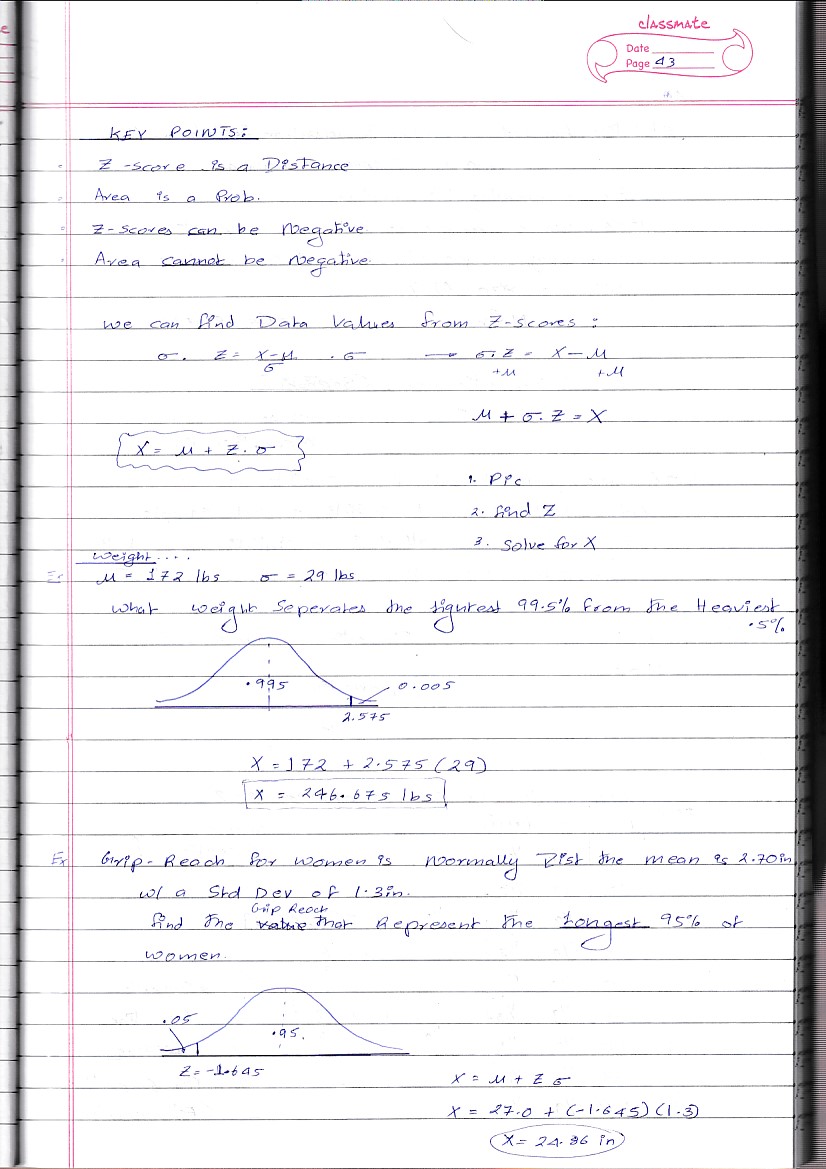 classmate
Date
Page 43
KEY POINTS:
Z-score is a Distance
Area is a Prob.
Z-scores can be Negative
Area cannot be Negative.
we can find Data Values from Z-scores :
σ. Z = X-μ/σ . σ → σ.Z = X-μ
+μ +μ
μ + σ.Z = X
X = μ + Z.σ
1. Pic
2. find Z
3. Solve for X
Weight....
Ex μ = 172 lbs σ = 29 lbs
what weight Seperates the lightest 99.5% from the Heaviest
.5%
.995
0.005
2.575
X = 172 + 2.575(29)
X = 246.675 lbs
Ex Grip-Reach for women is Normally Dist the mean is 2.70in
w/ a Std Dev of 1.3in.
Grip Reach
find the value that Represent the Longest 95% of
women.
.05
.95.
Z= -1.645
X = μ + Z σ
X = 27.0 + (-1.645)(1.3)
X= 24.86 in